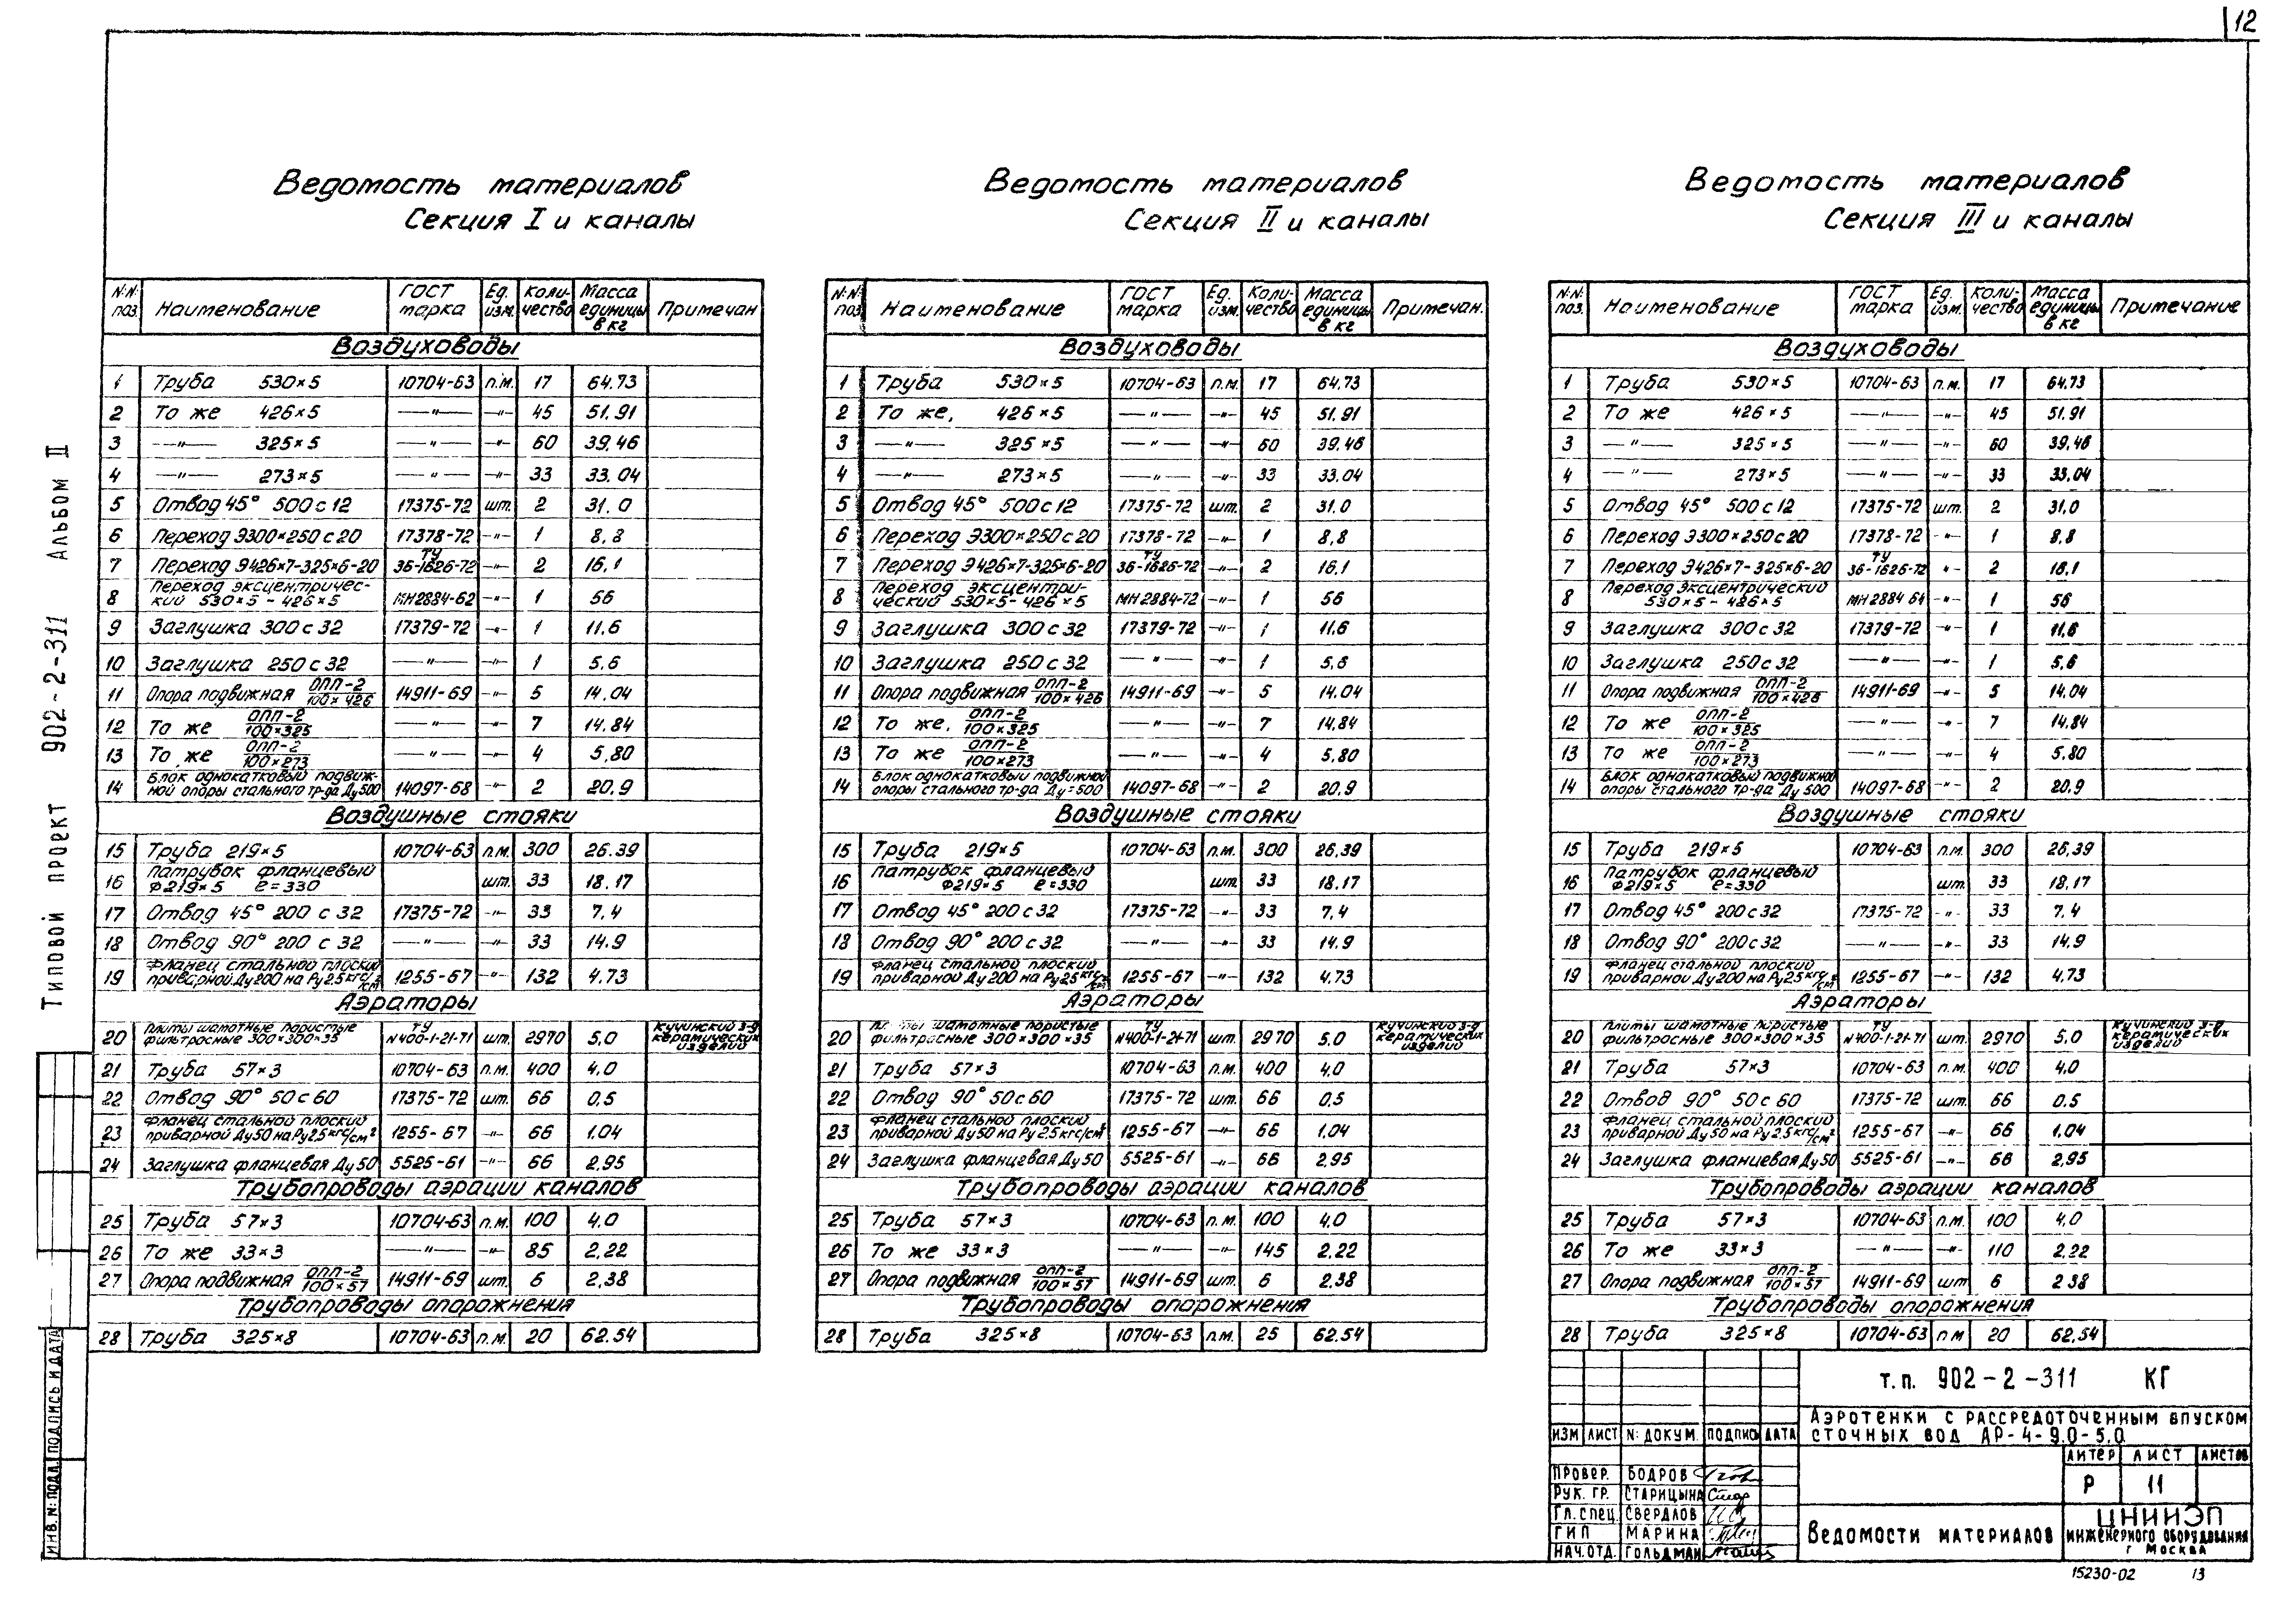 12
Типовой проект 902-2-311 Альбом II
Ведомость материалов
Секция I и каналы
N:N: поз. Наименование ГОСТ марка Ед. изм. Коли-чество Масса единицы в кг Примечан.
Воздуховоды
1 Труба 530×5 10704-63 п.м. 17 64.73
2 То же 426×5 —"— —"— 45 51.91
3 —"— 325×5 —"— —"— 60 39.46
4 —"— 273×5 —"— —"— 33 33.04
5 Отвод 45° 500 с 12 17375-72 шт. 2 31.0
6 Переход Э300×250 с 20 17378-72 —"— 1 8,8
7 Переход Э426×7-325×6-20 ТУ 36-1626-72 —"— 2 16,1
8 Переход эксцентричес-
кий 530×5 - 426×5 МН2884-62 —"— 1 56
9 Заглушка 300 с 32 17379-72 —"— 1 11,6
10 Заглушка 250 с 32 —"— —"— 1 5,6
11 Опора подвижная ОПП-2/100×426 14911-69 —"— 5 14.04
12 То же ОПП-2/100×325 —"— —"— 7 14,84
13 То же ОПП-2/100×273 —"— —"— 4 5,80
14 Блок однокатковый подвиж-
ной опоры стального тр-да Ду500 14097-68 —"— 2 20.9
Воздушные стояки
15 Труба 219×5 10704-63 п.м. 300 26.39
16 Патрубок фланцевый
Ф219×5 ℓ=330 шт. 33 18.17
17 Отвод 45° 200 с 32 17375-72 —"— 33 7,4
18 Отвод 90° 200 с 32 —"— —"— 33 14.9
19 Фланец стальной плоский
приварной Ду200 на Ру2.5 кгс/см² 1255-67 —"— 132 4.73
Аэраторы
20 Плиты шамотные пористые
фильтросные 300×300×35 ТУ N400-1-21-71 шт. 2970 5,0 Кучинский з-д керамических изделий
21 Труба 57×3 10704-63 п.м. 400 4,0
22 Отвод 90° 50 с 60 17375-72 шт. 66 0.5
23 Фланец стальной плоский
приварной Ду50 на Ру2.5 кгс/см² 1255-67 —"— 66 1.04
24 Заглушка фланцевая Ду50 5525-61 —"— 66 2.95
Трубопроводы аэрации каналов
25 Труба 57×3 10704-63 п.м. 100 4.0
26 То же 33×3 —"— —"— 85 2,22
27 Опора подвижная ОПП-2/100×57 14911-69 шт. 6 2,38
Трубопроводы опорожнения
28 Труба 325×8 10704-63 п.м. 20 62.54
Ведомость материалов
Секция II и каналы
N:N: поз. Наименование ГОСТ марка Ед. изм. Коли-чество Масса единицы в кг Примечан.
Воздуховоды
1 Труба 530×5 10704-63 п.м. 17 64.73
2 То же, 426×5 —"— —"— 45 51,91
3 —"— 325×5 —"— —"— 60 39.46
4 —"— 273×5 —"— —"— 33 33.04
5 Отвод 45° 500 с 12 17375-72 шт. 2 31.0
6 Переход Э300×250 с 20 17378-72 —"— 1 8,8
7 Переход Э426×7-325×6-20 ТУ 36-1626-72 —"— 2 16,1
8 Переход эксцентри-
ческий 530×5-426×5 МН2884-72 —"— 1 56
9 Заглушка 300 с 32 17379-72 —"— 1 11,6
10 Заглушка 250 с 32 —"— —"— 1 5,6
11 Опора подвижная ОПП-2/100×426 14911-69 —"— 5 14.04
12 То же, ОПП-2/100×325 —"— —"— 7 14,84
13 То же ОПП-2/100×273 —"— —"— 4 5,80
14 Блок однокатковый подвижной
опоры стального тр-да Ду=500 14097-68 —"— 2 20.9
Воздушные стояки
15 Труба 219×5 10704-63 п.м. 300 26,39
16 Патрубок фланцевый
Ф219×5 ℓ=330 шт. 33 18.17
17 Отвод 45° 200 с 32 17375-72 —"— 33 7.4
18 Отвод 90° 200 с 32 —"— —"— 33 14.9
19 Фланец стальной плоский
приварной Ду200 на Ру2.5 кгс/см² 1255-67 —"— 132 4.73
Аэраторы
20 Плиты шамотные пористые
фильтросные 300×300×35 ТУ N400-1-21-71 шт. 2970 5.0 Кучинский з-д керамических изделий
21 Труба 57×3 10704-63 п.м. 400 4.0
22 Отвод 90° 50 с 60 17375-72 шт. 66 0.5
23 Фланец стальной плоский
приварной Ду50 на Ру2.5 кгс/см² 1255-67 —"— 66 1,04
24 Заглушка фланцевая Ду50 5525-61 —"— 66 2,95
Трубопроводы аэрации каналов
25 Труба 57×3 10704-63 п.м. 100 4.0
26 То же 33×3 —"— —"— 145 2.22
27 Опора подвижная ОПП-2/100×57 14911-69 шт. 6 2.38
Трубопроводы опорожнения
28 Труба 325×8 10704-63 п.м. 25 62.54
Ведомость материалов
Секция III и каналы
N:N: поз. Наименование ГОСТ марка Ед. изм. Коли-чество Масса единицы в кг Примечание
Воздуховоды
1 Труба 530×5 10704-63 п.м. 17 64.73
2 То же 426×5 —"— —"— 45 51.91
3 —"— 325×5 —"— —"— 60 39,46
4 —"— 273×5 —"— —"— 33 33,04
5 Отвод 45° 500 с 12 17375-72 шт. 2 31,0
6 Переход Э300×250 с 20 17378-72 —"— 1 8,8
7 Переход Э426×7-325×6-20 ТУ 36-1626-72 —"— 2 16,1
8 Переход эксцентрический
530×5 - 426×5 МН2884 61 —"— 1 56
9 Заглушка 300 с 32 17379-72 —"— 1 11,6
10 Заглушка 250 с 32 —"— —"— 1 5,6
11 Опора подвижная ОПП-2/100×426 14911-69 —"— 5 14,04
12 То же ОПП-2/100×325 —"— —"— 7 14,84
13 То же ОПП-2/100×273 —"— —"— 4 5.80
14 Блок однокатковый подвижной
опоры стального тр-да Ду 500 14097-68 —"— 2 20,9
Воздушные стояки
15 Труба 219×5 10704-63 п.м. 300 26,39
16 Патрубок фланцевый
Ф219×5 ℓ=330 шт. 33 18,17
17 Отвод 45° 200 с 32 17375-72 —"— 33 7,4
18 Отвод 90° 200 с 32 —"— —"— 33 14,9
19 Фланец стальной плоский
приварной Ду200 на Ру2.5 кгс/см² 1255-67 —"— 132 4,73
Аэраторы
20 Плиты шамотные пористые
фильтросные 300×300×35 ТУ N400-1-21-71 шт. 2970 5,0 Кучинский з-д керамических изделий
21 Труба 57×3 10704-63 п.м. 400 4,0
22 Отвод 90° 50 с 60 17375-72 шт. 66 0.5
23 Фланец стальной плоский
приварной Ду50 на Ру2.5 кгс/см² 1255-67 —"— 66 1,04
24 Заглушка фланцевая Ду50 5525-61 —"— 66 2,95
Трубопроводы аэрации каналов
25 Труба 57×3 10704-63 п.м. 100 4,0
26 То же 33×3 —"— —"— 110 2,22
27 Опора подвижная ОПП-2/100×57 14911-69 шт 6 2 38
Трубопроводы опорожнения
28 Труба 325×8 10704-63 п м 20 62,54
т.п. 902-2-311 КГ
Аэротенки с рассредоточенным впуском
сточных вод АР-4-9.0-5.0
ИЗМ ЛИСТ N: ДОКУМ. ПОДПИСЬ ДАТА
ПРОВЕР. БОДРОВ
РУК. ГР. СТАРИЦЫНА
ГЛ. СПЕЦ. СВЕРДЛОВ
ГИП МАРИНА
НАЧ.ОТД. ГОЛЬДМАН
ЛИТЕР ЛИСТ ЛИСТОВ
Р 11
Ведомости материалов
ЦНИИЭП
инженерного оборудования
г Москва
15230-02 13
ИНВ. N: ПОДЛ. ПОДПИСЬ И ДАТА